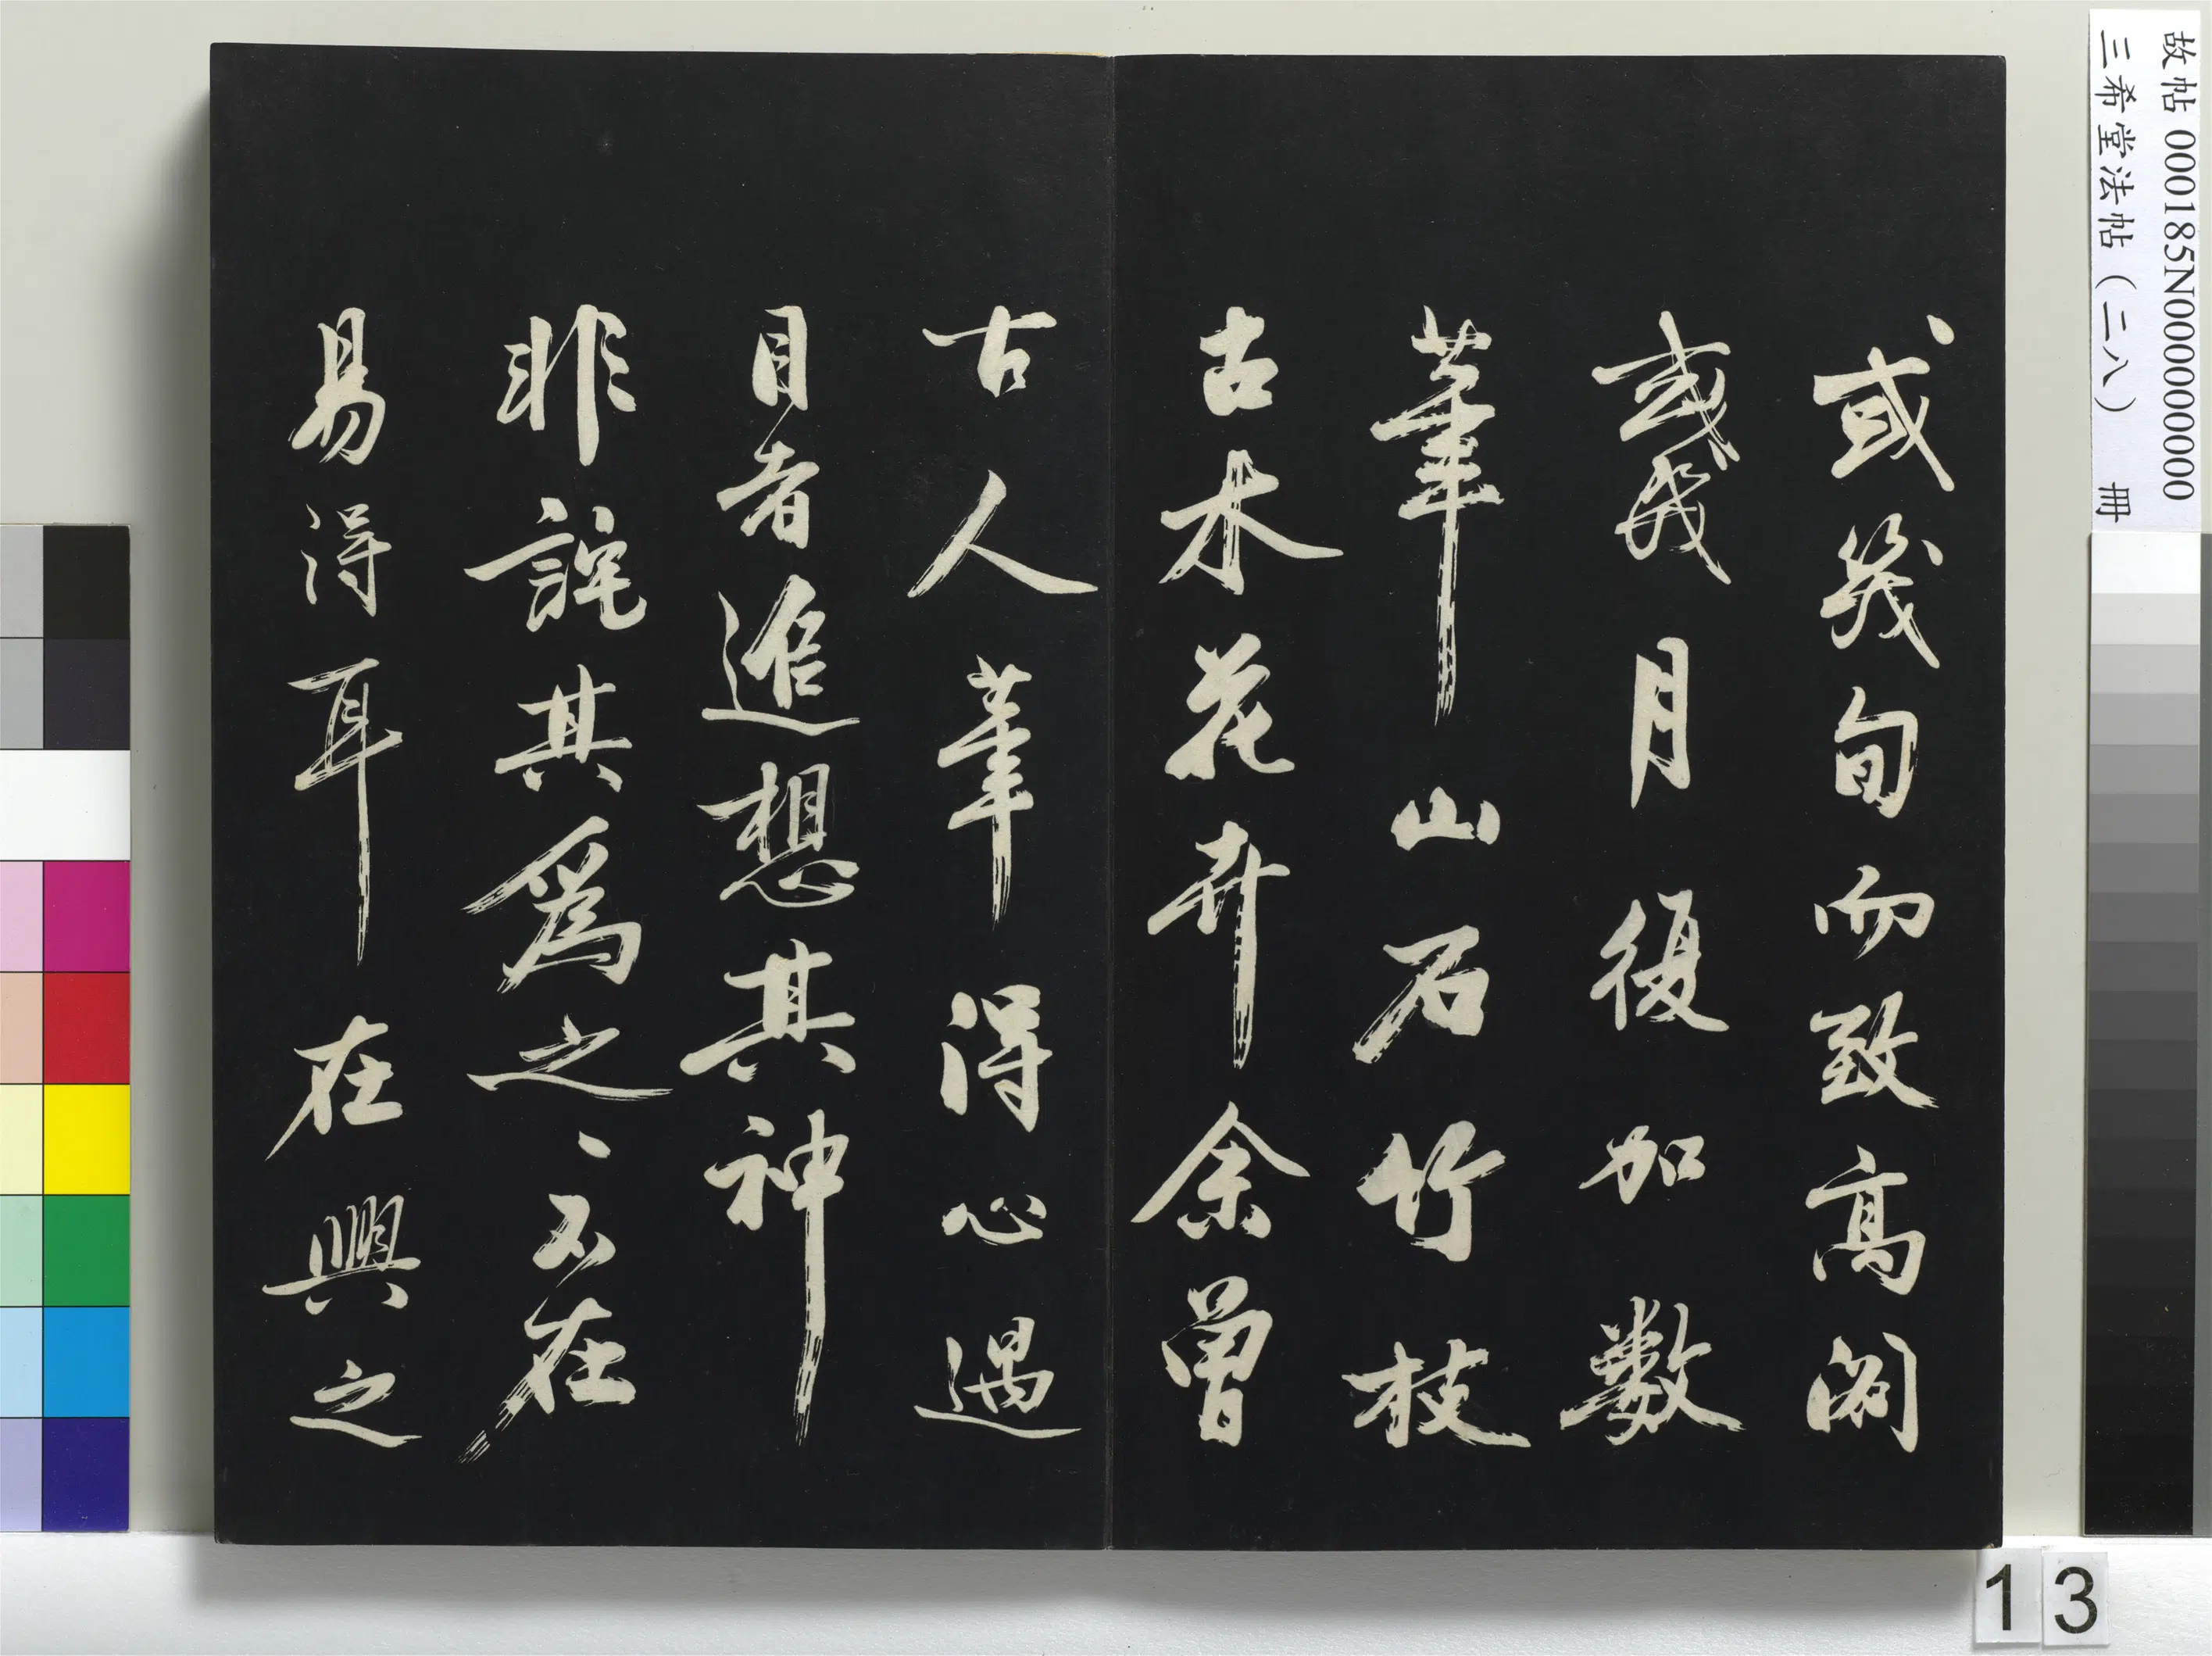 或幾旬而致高閣
或幾月復加數
筆山石竹枝
古木花卉余曾
古人筆得心遇
目者追想其神
非詫其為之之不在
易得耳在興之
故帖 000185N000000000
三希堂法帖（二八） 冊
13